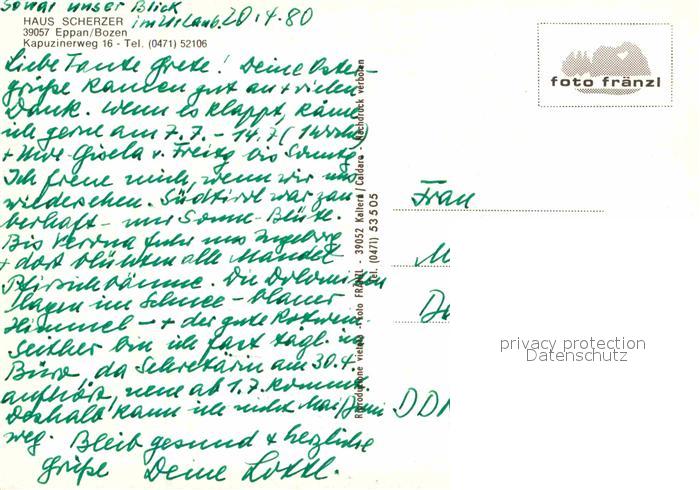 Sonal unser Blick
im Urlaub. 20.4.80
HAUS SCHERZER
39057 Eppan/Bozen
Kapuzinerweg 16 - Tel. (0471) 52106
Liebe Tante Grete! Deine Oster-
grüße kamen gut an + vielen
Dank. Wenn es klappt, käme
ich gerne am 7.7. - 14.7 (1 Woche)
+ Uwe-Gisela v. Freitg bis Sonntg.
Ich freue mich, wenn wir uns
wiedersehen. Südtirol war zau
berhaft - nur Sonne-Blüte.
Bis Verona fuhr uns Ingeborg
+ dort blühten alle Mandel
Pfirsichbäume. Die Dolomiten
lagen im Schnee - blauer
Himmel - + der gute Rotwein.
Seither bin ich fast tägl. im
Büro, da Sekretärin am 30.4.
aufhört, neue ab 1.7. kommt.
Deshalb kann ich nicht Mai/Juni
weg. Bleib gesund + herzliche
Grüße Deine Lottl.
Riproduzione vietata - Foto FRÄNZL - 39052 Kaltern/Caldaro - Nachdruck verboten
Tel. (0471) 53505
foto fränzl
Frau
M
D
DDR
privacy protection
Datenschutz